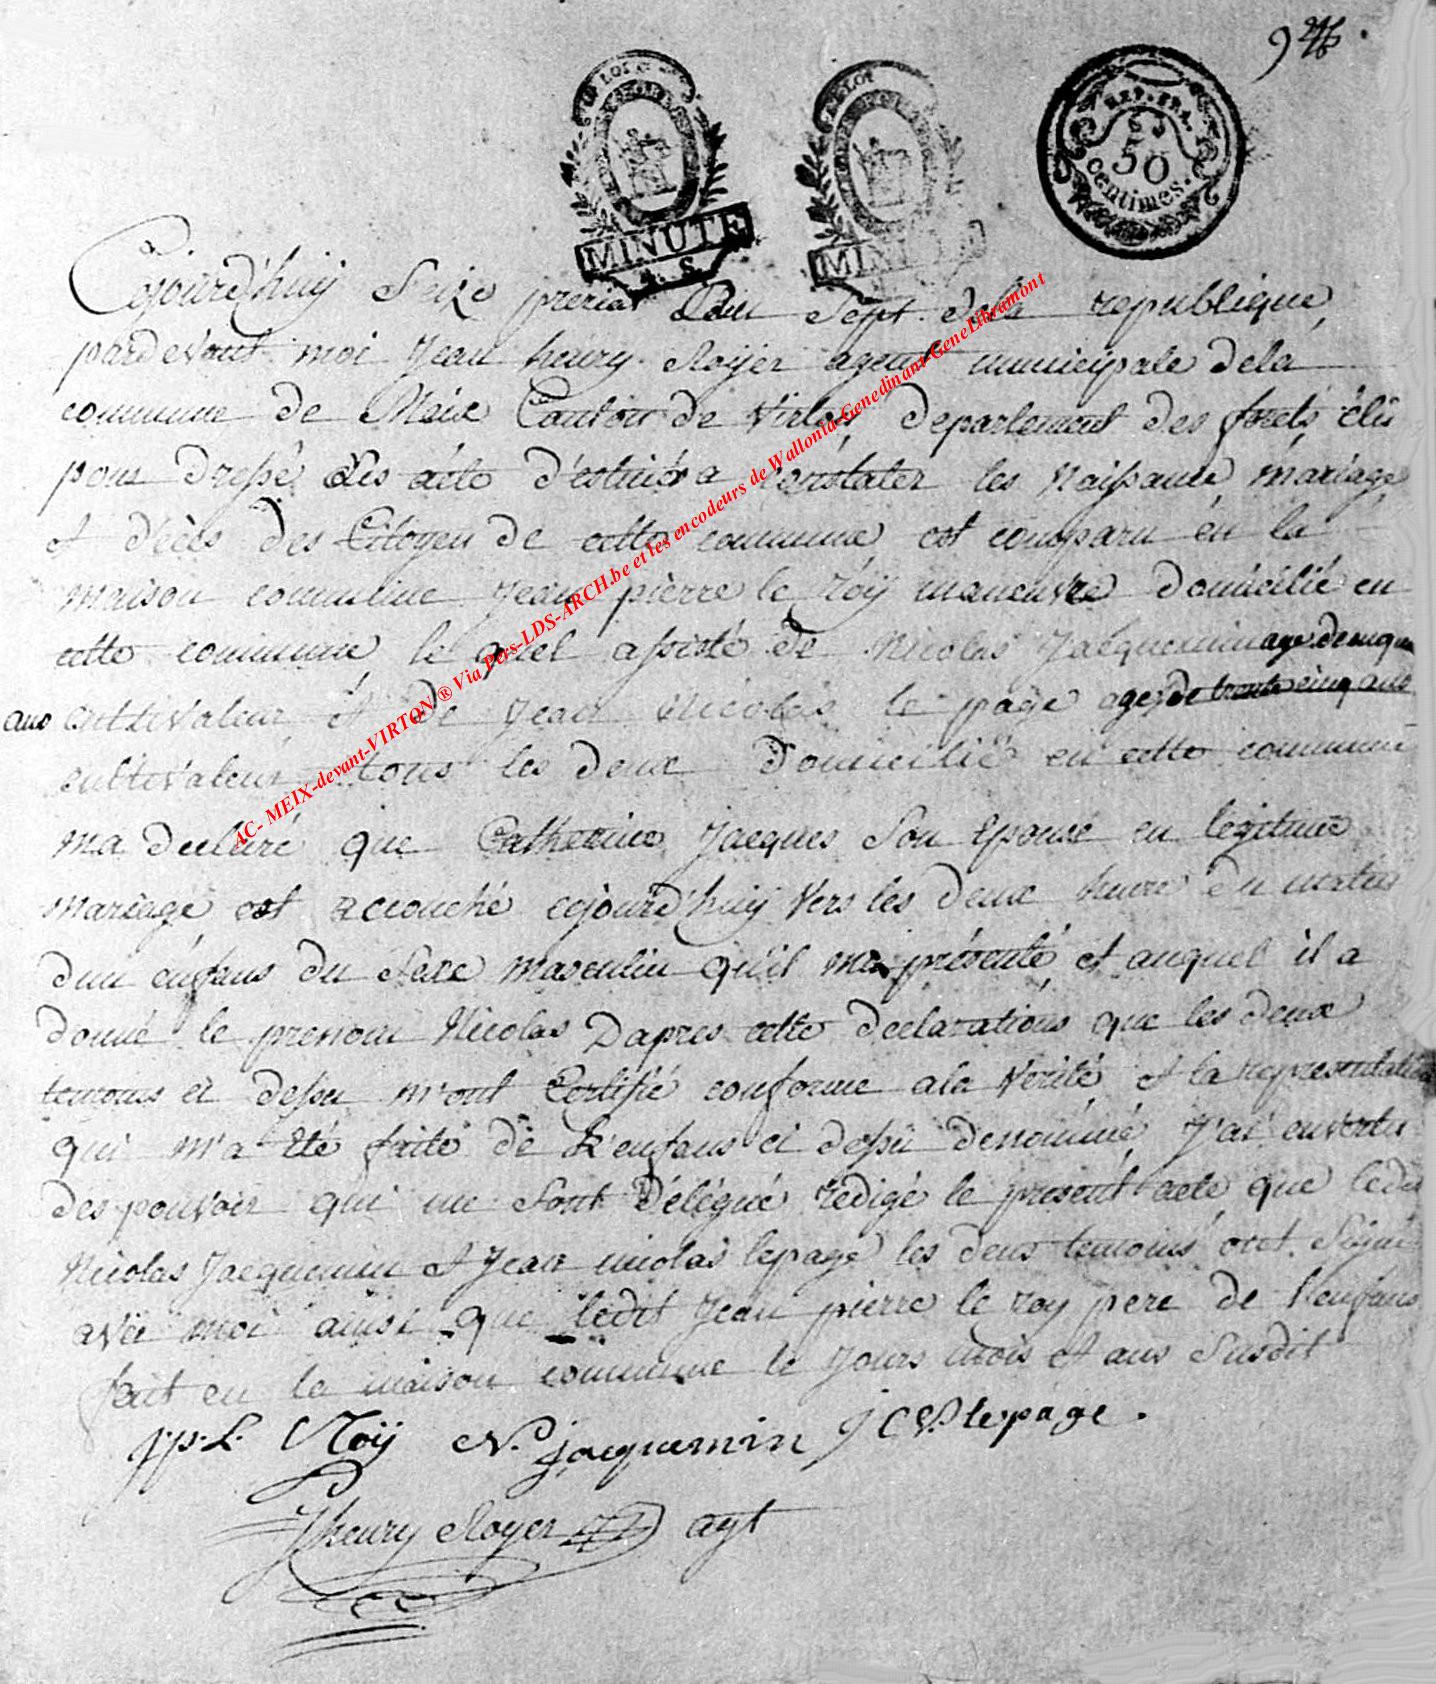 9
LOI
MINUTE
A. S.
LOI
MINUTE
REP. FRA.
50
centimes.
Cejourd'huÿ Seize prerial Lan Sept dela republique
pardevant moi Jean henry Royer agent municipale dela
commune de Meix Canton de Virton departement des forets élu
pour dressé les acte destiné a constater les Naissance mariage
et décès des Citoyen de cette commune est comparu en la
maison commune Jean pierre le roÿ maneuvre domicilié en
cette commune le quel assisté de Nicolas Jacquemin age de
ans cultivateur et de Jean Nicolas le page agez de trente cinq ans
cultivateur tous les deux domicilié en cette commune
ma declaré que Catherine Jacques son Epouse en legitime
mariage est accouché cejourd'huÿ vers les deux heure du matin
dun énfans du sexe masculin qu'il ma présenté et auquel il a
donné le prenom Nicolas Dapres cette declarations que les deux
temoins ci dessu m'ont Certifié conforme ala Verité et la representation
qui m'a été faite de L'enfans ci dessu denommé J'ai en vertu
des pouvoir qui me sont délégué redigé le présent acte que ledit
Nicolas Jacquemin et Jean nicolas lepage les deux temoins ont Signé
avec moi ainsi que ledit Jean pierre le roy pere de L'enfans
fait en la maison commune le Jours mois et ans susdit
jp. L. Roÿ N. jacquemin j N lepage.
Jhenry Royer agt
AC- MEIX-devant-VIRTON ® Via Pers-LDS-ARCH.be et les encodeurs de Wallonia-Genedinant-GeneLibramont